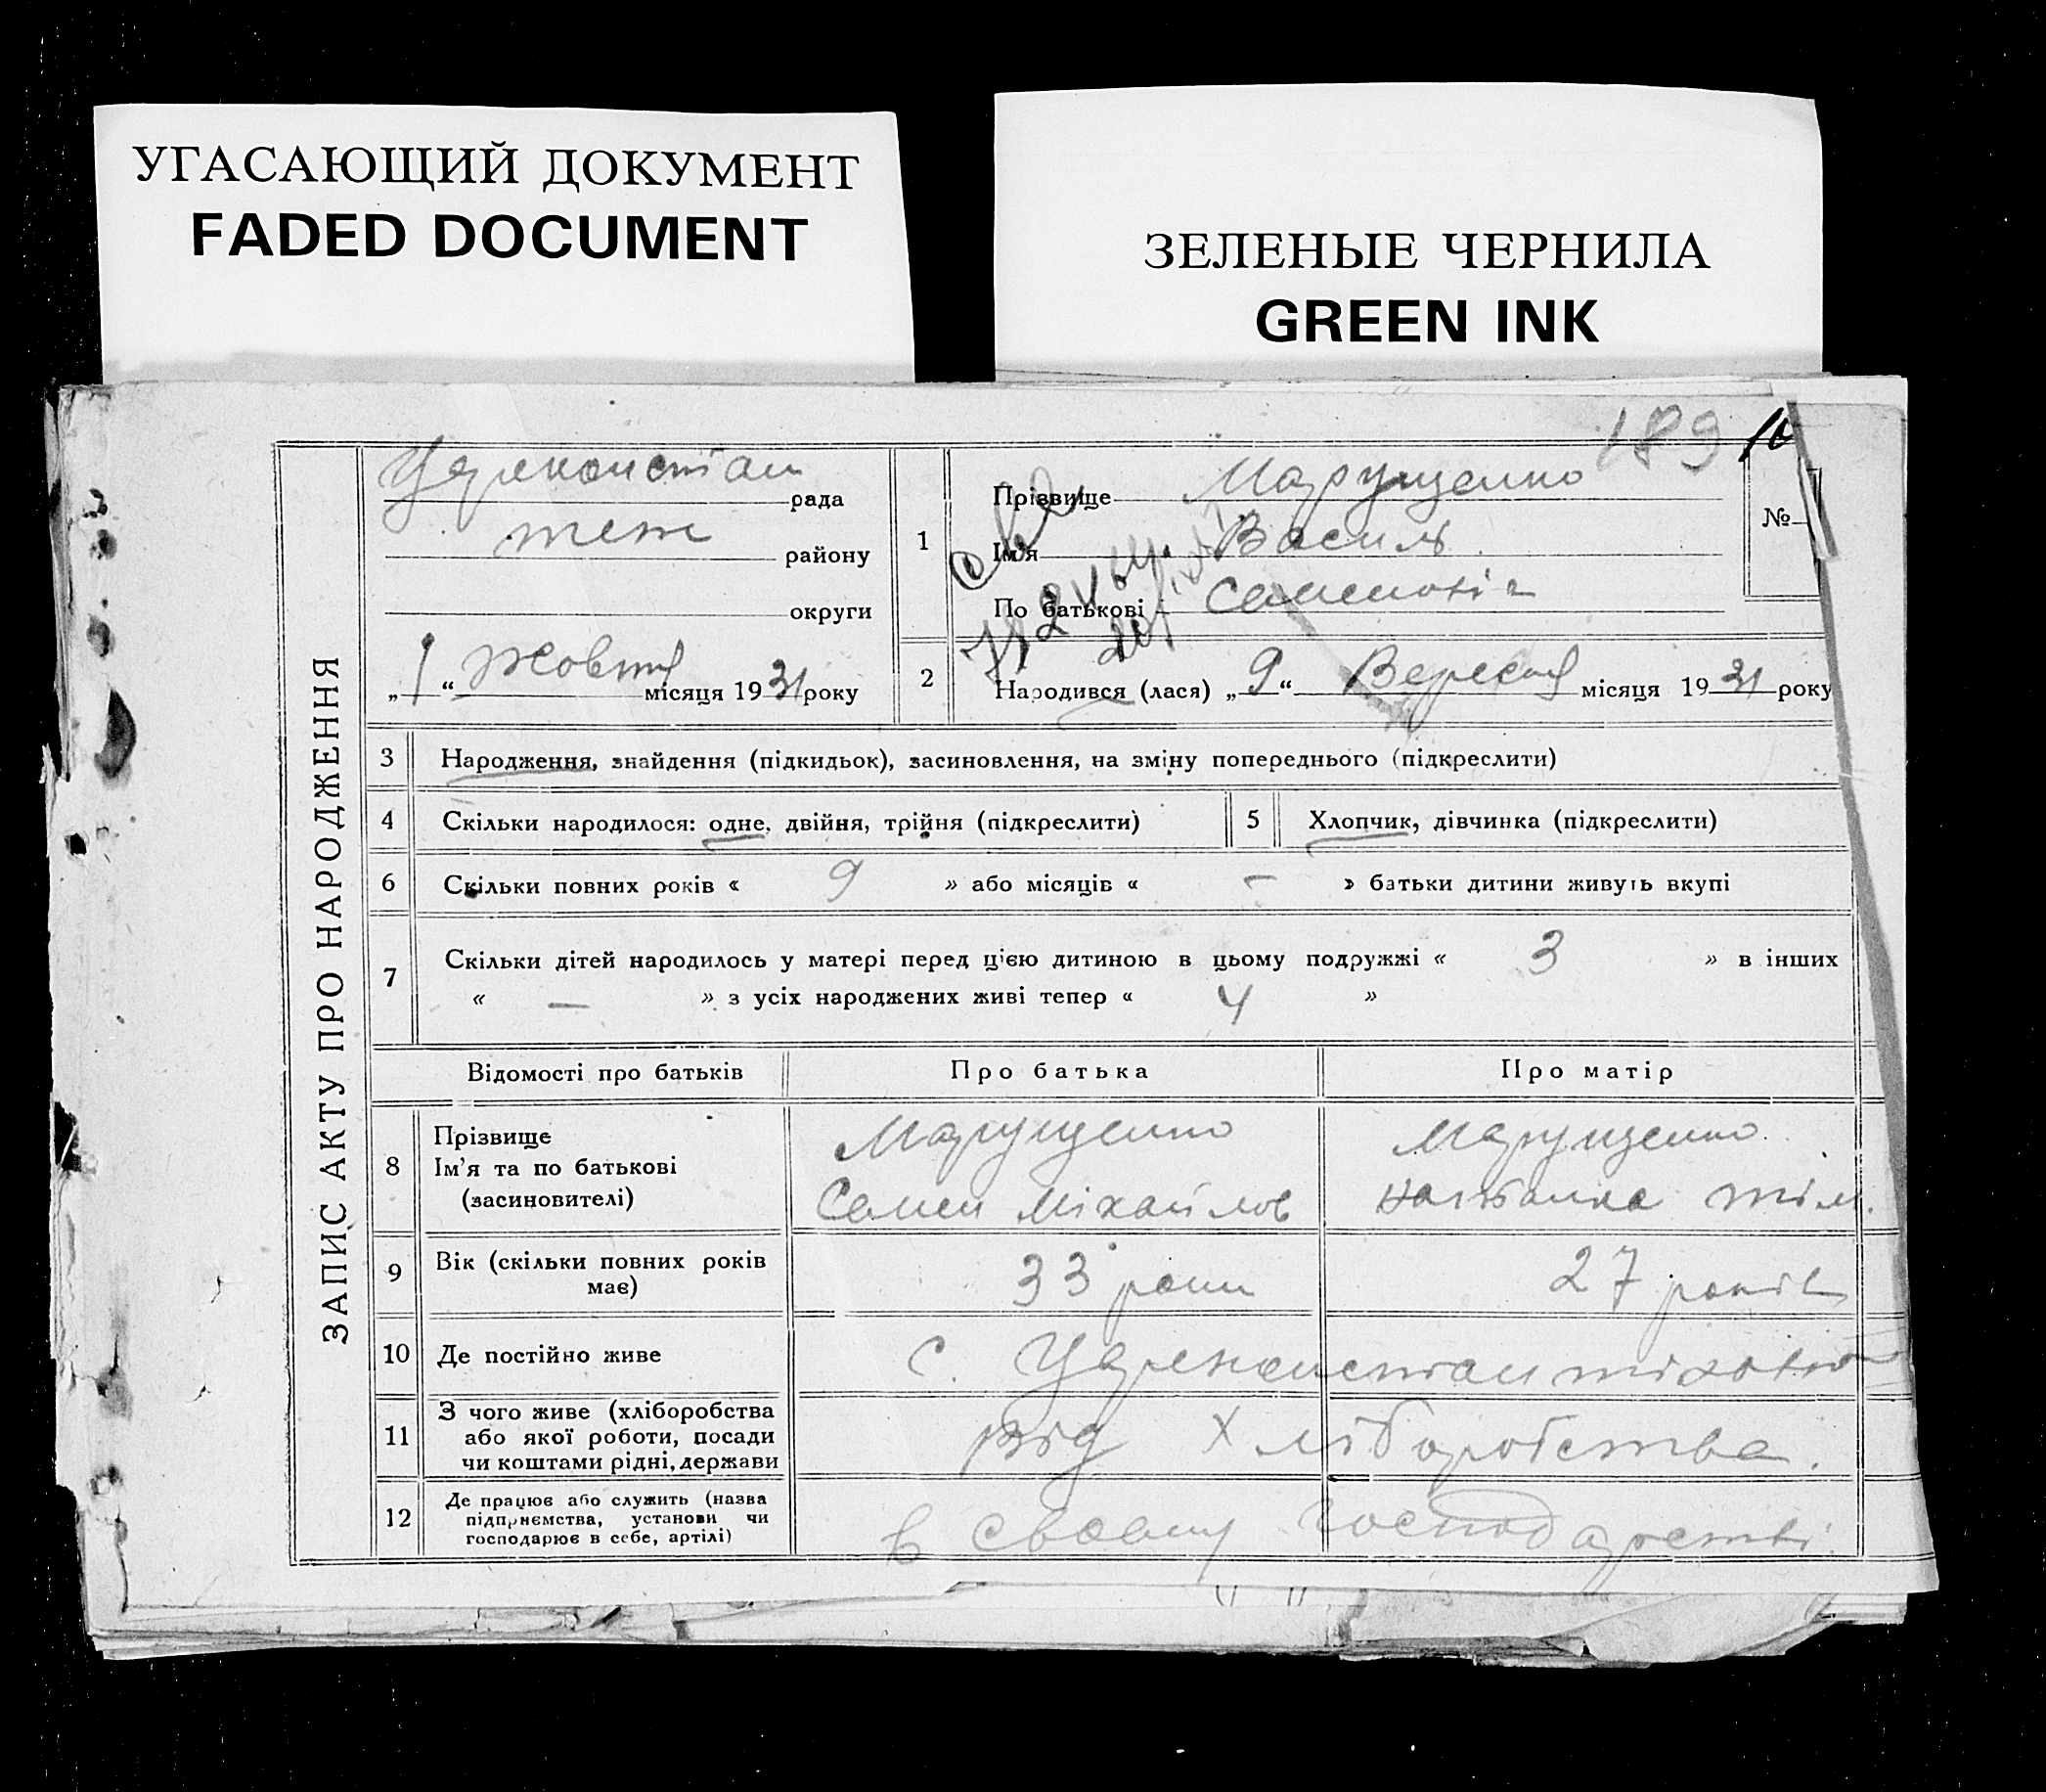 УГАСАЮЩИЙ ДОКУМЕНТ
FADED DOCUMENT
ЗЕЛЕНЫЕ ЧЕРНИЛА
GREEN INK
189
ЗАПИС АКТУ ПРО НАРОДЖЕННЯ
Цареконстан рада
теж району
округи
„1“ Жовтня місяця 1931 року
1
Прізвище Марущенко
Ім'я Василь
По батькові Семенові
№
2
Народився (лася) „9“ Вересня місяця 1931 року
3 Народження, знайдення (підкидьок), засиновлення, на зміну попереднього (підкреслити)
4 Скільки народилося: одне, двійня, трійня (підкреслити)
5 Хлопчик, дівчинка (підкреслити)
6 Скільки повних років « 9 » або місяців « – » батьки дитини живуть вкупі
7 Скільки дітей народилось у матері перед цією дитиною в цьому подружжі « 3 » в інших
« — » з усіх народжених живі тепер « 4 »
Відомості про батьків Про батька Про матір
8 Прізвище
Ім'я та по батькові
(засиновителі)
Марущенко
Семен Міхайлов
Марущенко
9 Вік (скільки повних років
має)
33 роки
27 років
10 Де постійно живе
с. Цареконстантіновка
11 З чого живе (хліборобства
або якої роботи, посади
чи коштами рідні, держави
від Хліборобства.
12 Де працює або служить (назва
підприємства, установи чи
господарює в себе, артілі)
в своєму господарстві